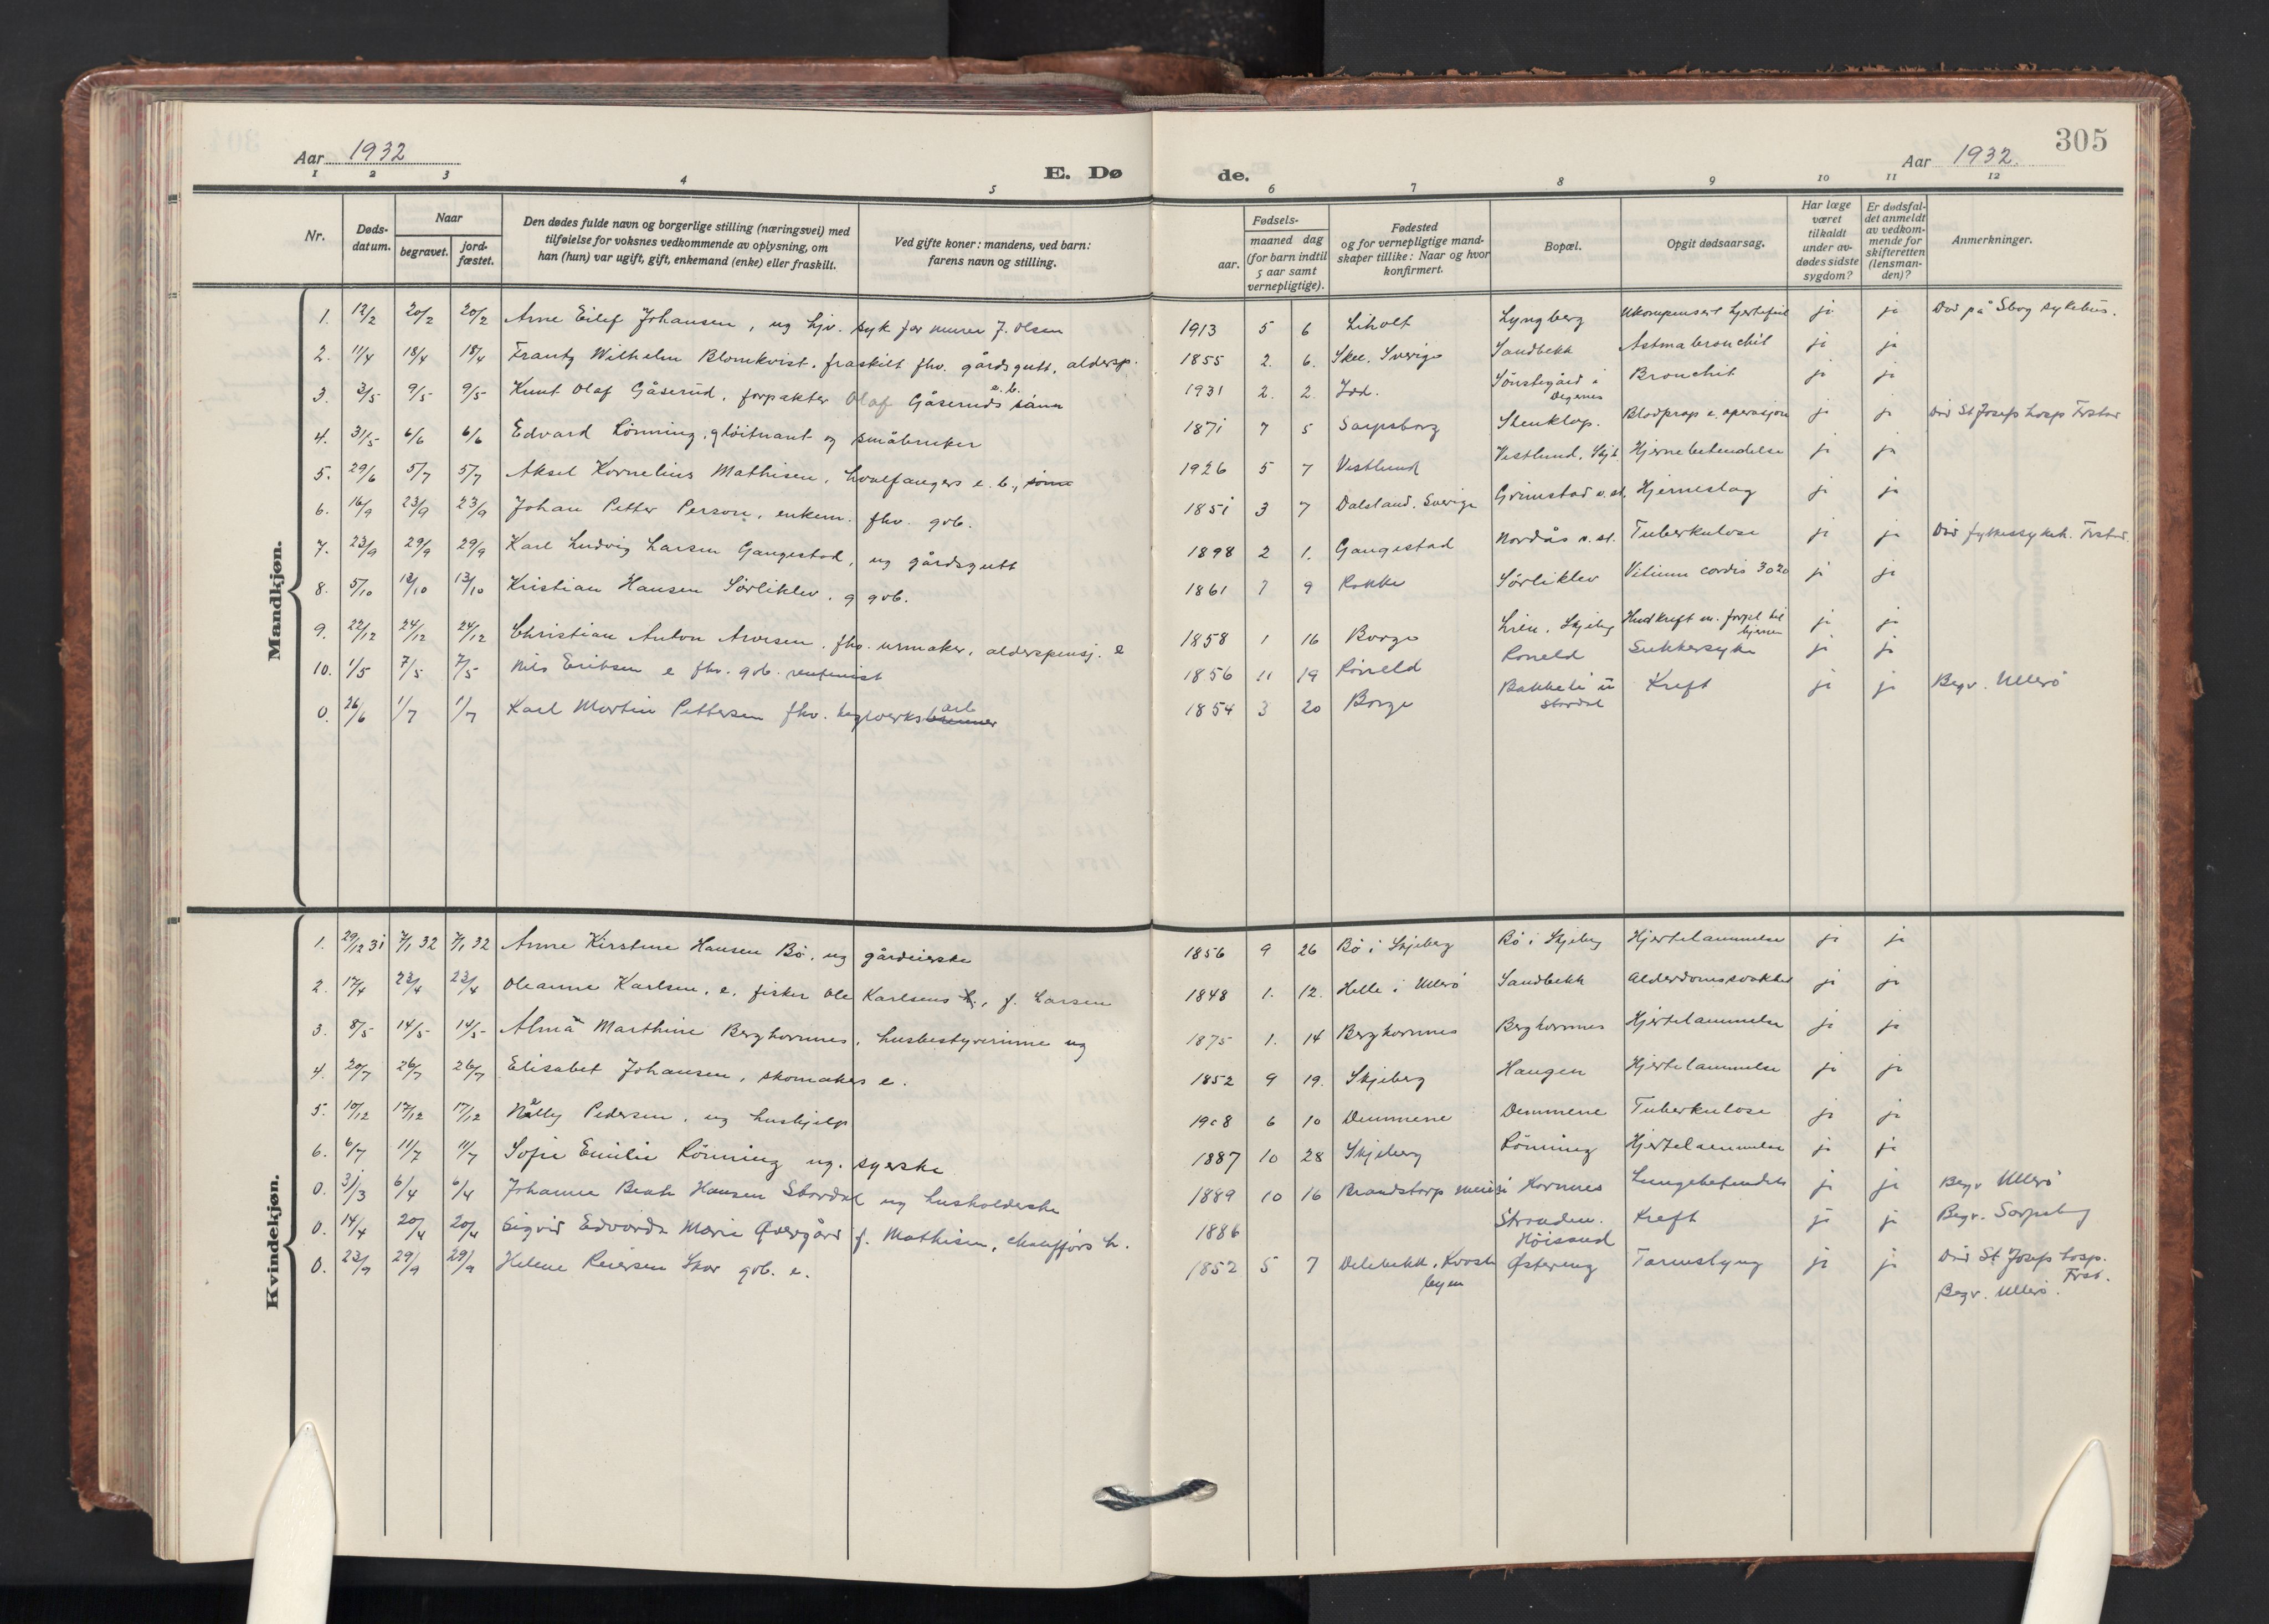 Aar 1932
E. Dø
de.
Aar 1932.
305
1 2 3 4 5 6 7 8 9 10 11 12
Nr.
Døds-
datum.
Naar
begravet.
jord-
fæstet.
Den dødes fulde navn og borgerlige stilling (næringsvei) med
tilføielse for voksnes vedkommende av oplysning, om
han (hun) var ugift, gift, enkemand (enke) eller fraskilt.
Ved gifte koner: mandens, ved barn:
farens navn og stilling.
Fødsels-
aar.
maaned dag
(for barn indtil
5 aar samt
vernepligtige).
Fødested
og for vernepligtige mand-
skaper tillike: Naar og hvor
konfirmert.
Bopæl.
Opgit dødsaarsag.
Har læge
været
tilkaldt
under av-
dødes sidste
sygdom?
Er dødsfal-
det anmeldt
av vedkom-
mende for
skifteretten
(lensman-
den)?
Anmerkninger.
Mandkjøn.
1. 12/2 20/2 20/2 Arne Eilef Johansen, ug hjv. syk før murer J. Olsen 1913 5 6 Liholt Lyngberg Ukompensert hjertefeil ja ja Død på Sbog sykehus.
2. 11/4 18/4 18/4 Frantz Wilhelm Blomkvist. fraskilt fhv. gårdsgutt, aldersp. 1855 2. 6. Skee. Sverige Sandbekk Astmabronchit ja ja
3. 3/5 9/5 9/5 Knut Olaf Gåserud, forpakter Olaf Gåseruds e.b. sønn 1931 2. 2. Idd. Sönstegård i Degernes Bronchit ja ja
4. 31/5 6/6 6/6 Edvard Lönning, gløitnant og småbruker 1871 7 5 Sarpsborg Stenklop. Blodprop e. operasjon ja ja Död St Josefs hosp Frstad
5. 29/6 5/7 5/7 Aksel Kornelius Mathisen, hvalfangers e.b., sönn 1926 5 7 Vestlund Vestlund, Skjb. Hjernebetendelse ja ja
6. 16/9 23/9 23/9 Johan Petter Person, enkem. fhv. gvb. 1851 3 7 Dalsland. Sverige Grimstad v. st. Hjerneslag ja ja
7. 23/9 29/9 29/9 Karl Ludvig Larsen Gangestad, ug gårdsgutt 1898 2 1. Gangestad Nordås v. st. Tuberkulose ja ja Död fylkessykeh. Frstad.
8. 5/10 13/10 13/10 Kristian Hansen Sörliklev. g gvb. 1861 7 9 Rakke Sörliklev Vitium cordis ja ja
9. 22/12 24/12 24/12 Christian Anton Arvesen. fhv. urmaker. alderspensj. e 1858 1 16 Borge Lien. Skjeberg Hudkreft m. forpl til hjernen ja ja
10. 1/5 7/5 7/5 Nils Eriksen e fhv. gvb. rentenist 1856 11 19 Röneld Roneld Sukkersyke ja ja
0. 26/6 1/7 1/7 Karl Martin Pettersen fhv. teglverksbrenner arb 1854 3 20 Borge Bakkeli u Stordal Kreft ja ja Begr. Ullerö
Kvindekjøn.
1. 29/12 31 7/1 32 7/1 32 Anne Kirstine Hansen Bö. ug gårdeierske 1856 9 26 Bö i Skjeberg Bö i Skjeberg Hjertelammelse ja ja
2. 17/4 23/4 23/4 Oleanne Karlsen, e. fisker Ole Karlsens h., f. Larsen 1848 1. 12. Helle i Ullerö Sandbekk Alderdomssvakhet ja ja
3. 8/5 14/5 14/5 Alma Marthine Berghornnes, husbestyrerinne ug 1875 1. 14 Berghornnes Berghornnes Hjertelammelse ja ja
4. 20/7 26/7 26/7 Elisabet Johansen, skomakers e. 1852 9 19. Skjeberg Haugen Hjertelammelse ja ja
5. 10/12 17/12 17/12 Nelly Pedersen. ug hushjelp 1908 6 10 Demmene Demmene Tuberkulose ja ja
6. 6/7 11/7 11/7 Sofie Emilie Rönning ug. syerske 1887 10 28 Skjeberg Rönning Hjertelammelse ja ja
0. 31/3 6/4 6/4 Johanne Beate Hansen Stordal ug husholderske 1889 10 16 Brandstorp meieri Hornnes Lungebetendelse ja ja Begr Ullerö
0. 14/4 20/4 20/4 Sigrid Edvarda Marie Övergård f. Mathisen, chaufførs h. 1886 Stranden. Höisand Kreft ja ja Begr. Sarpsborg
0. 23/9 29/9 29/9 Helene Reiersen Skor gvb. e. 1852 5 7 Delebekk. Kvasteby­en Østereng Tarmslyng ja ja Död St Josefs hosp. Frst. Begr. Ullerö.